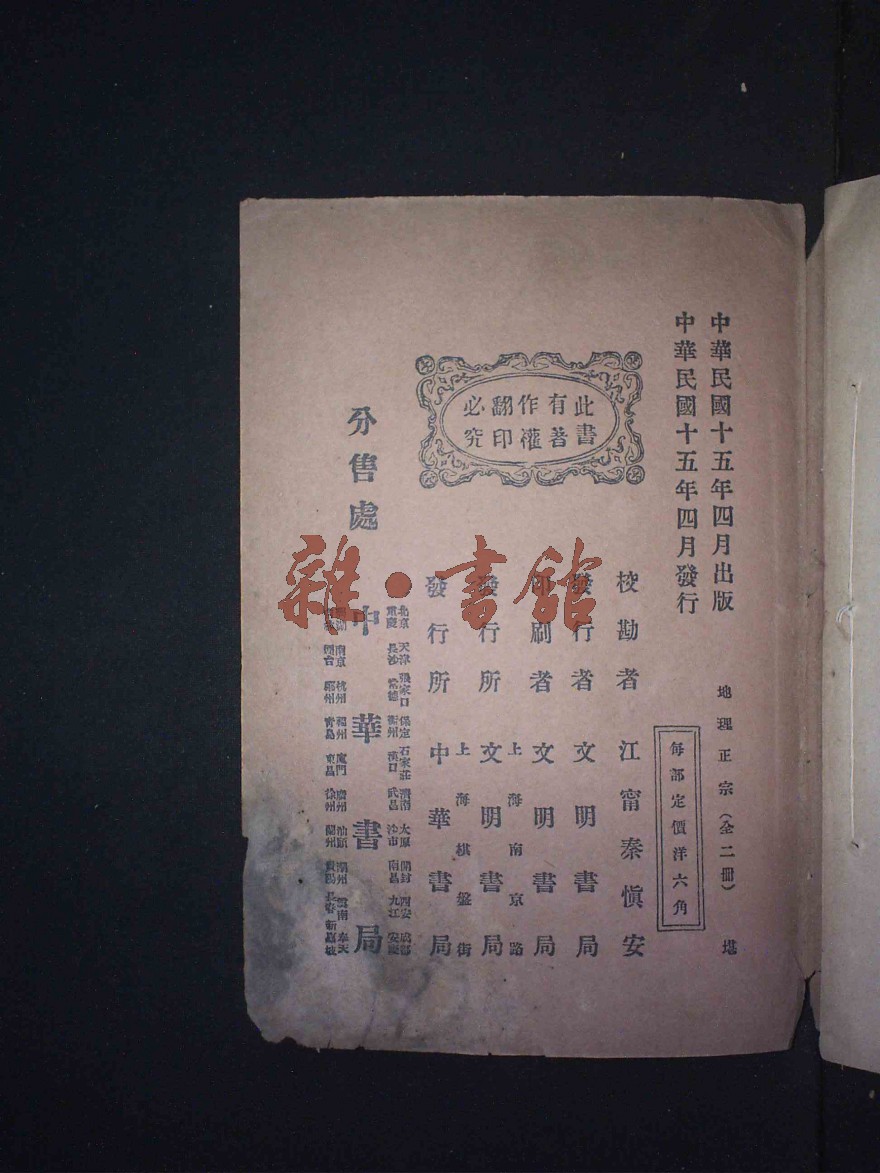 中華民國十五年四月出版
中華民國十五年四月發行
地理正宗(全二冊) 堪
每部定價洋六角
此書
有著
作權
翻印
必究
校勘者 江甯秦愼安
發行者 文明書局
印刷者 文明書局
上海南京路
發行所 文明書局
上海棋盤街
發行所 中華書局
分售處
北京 天津 張家口 保定 石家莊 濟南 太原 開封 西安 成都
重慶 長沙 常德 衡州 漢口 武昌 沙市 南昌 九江 安慶
中華書局
南京 杭州 福州 廈門 廣州 汕頭 潮州 雲南 奉天
煙台 鄭州 青島 東昌 徐州 蘭州 貴陽 長春 新嘉坡
雜·書館